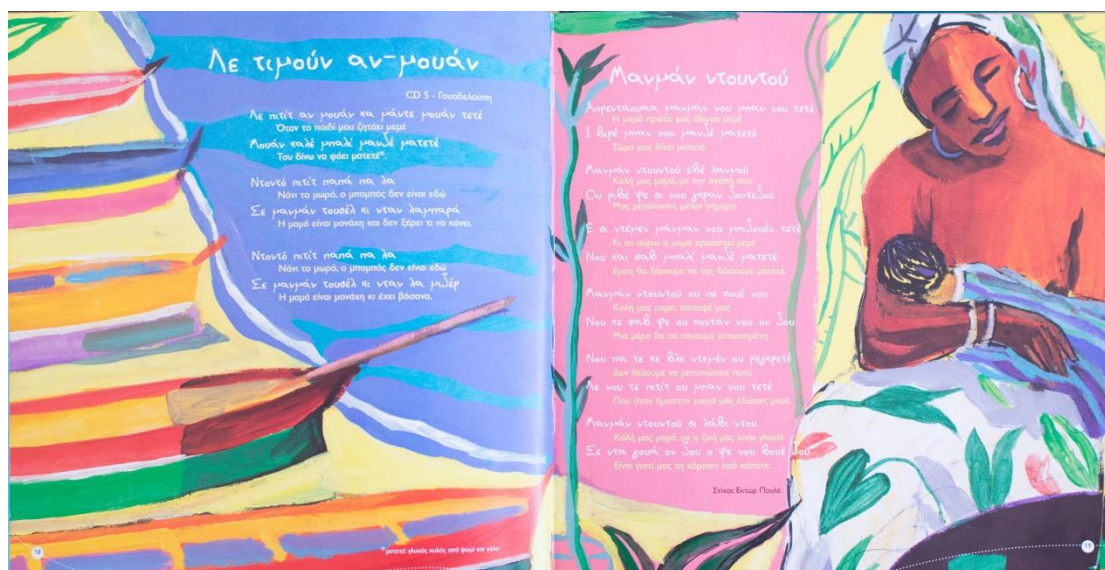 Λε τιμούν αν-μουάν
CD 5 - Γουαδελούπη
Λε πιτίτ αν μουάν κα μάντε μουάν τετέ
Όταν το παιδί μου ζητάει μεμέ
Μουάν καλέ μπαλί μανζέ ματετέ
Του δίνω να φάει ματετέ*.
Ντοντό πιτίτ παπά πα λα
Νάνι το μωρό, ο μπαμπάς δεν είναι εδώ
Σε μανμάν τουσέλ κι νταν λαμπαρά
Η μαμά είναι μονάχη και δεν ξέρει τι να κάνει.
Ντοντό πιτίτ παπά πα λα
Νάνι το μωρό, ο μπαμπάς δεν είναι εδώ
Σε μανμάν τουσέλ κι νταν λα μιζέρ
Η μαμά είναι μονάχη κι έχει βάσανα.
* ματετέ: γλυκός χυλός από ψωμί και γάλα
18
Μανμάν ντουντού
Απρεντάουαα μανμάν νου μπαν νου τετέ
Η μαμά πρώτα μας έδωσε μεμέ
Ι βιρέ μπαν νου μανζέ ματετέ
Τώρα μας δίνει ματετέ.
Μανμάν ντουντού εβέ λανμού
Καλή μας μαμά, με την αγάπη σου
Ου ριβέ φε σι νου γκραν ζοντεζού
Μας μεγάλωσες μέχρι σήμερα.
Ε σι ντεμέν μάνμαν νου μπιζουέν τετέ
Κι αν αύριο η μαμά χρειαστεί μεμέ
Νου και σαβ μπαλί μανζέ ματετέ
Εμείς θα ξέρουμε να της δώσουμε ματετέ.
Μανμάν ντουντού ου πε κουέ νου
Καλή μας μαμά, πίστεψέ μας
Νου κε σαβ φε ου κοντάν νου ον ζου
Μια μέρα θα σε κάνουμε ευτυχισμένη.
Νου πα τε κε βλε ντεμέν ου ρεγρετέ
Δεν θέλουμε να μετανιώσεις ποτέ
Λε νου τε πιτίτ ου μπαν νου τετέ
Που όταν ήμασταν μικρά μάς έδωσες μεμέ.
Μανμάν ντουντού σι λάβι ντου
Καλή μας μαμά, αν η ζωή μας είναι γλυκιά
Σε ντα γουά ον ζου ο φε νου βουέ ζου
Είναι γιατί μας τη χάρισες εσύ κάποτε.
Στίχοι: Εκτώρ Πουλέ
19